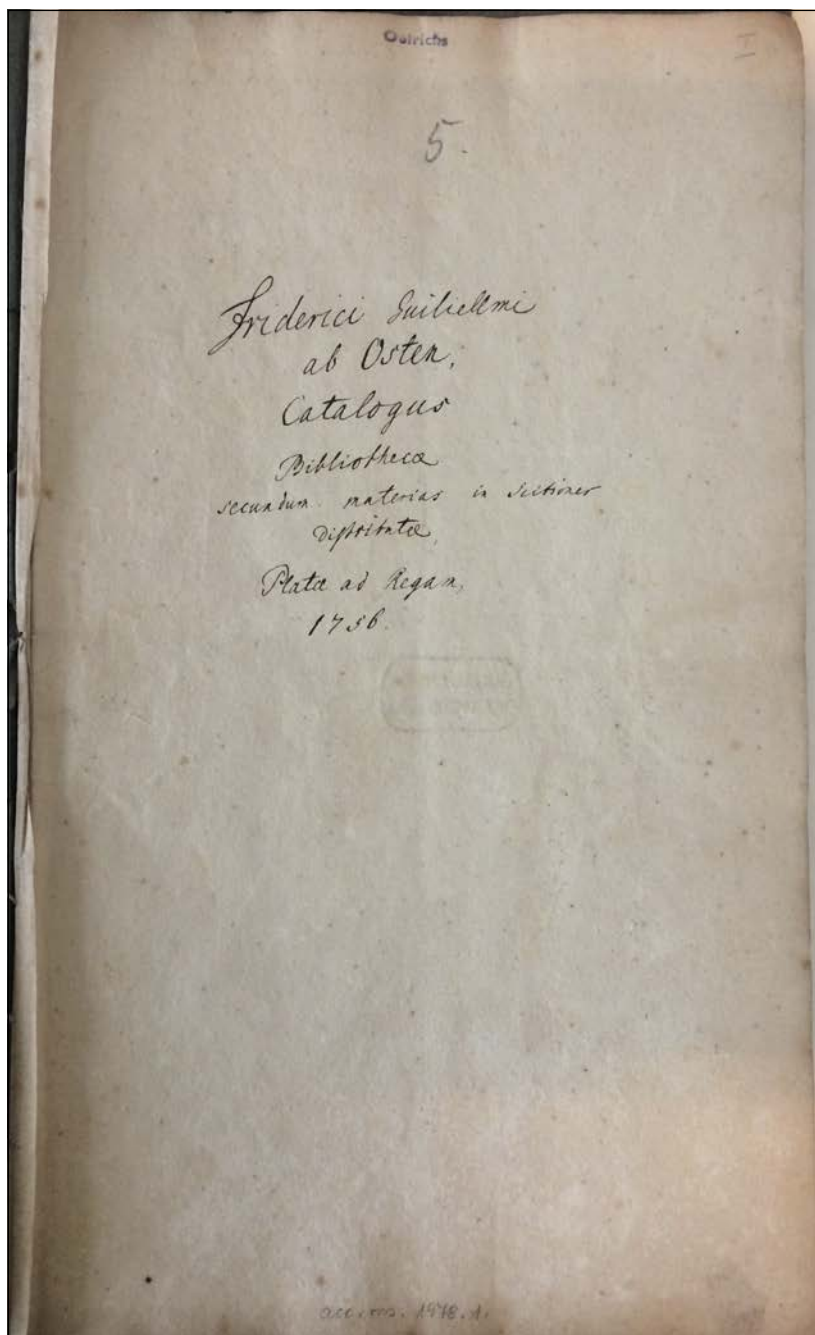 Oelrichs
I
5.
Friderici Guilielmi
ab Osten,
Catalogus
Bibliothecæ
secundum materias in Sectiones
distributæ,
Platæ ad Regam,
1756.
acc. ms. 1918. 1.